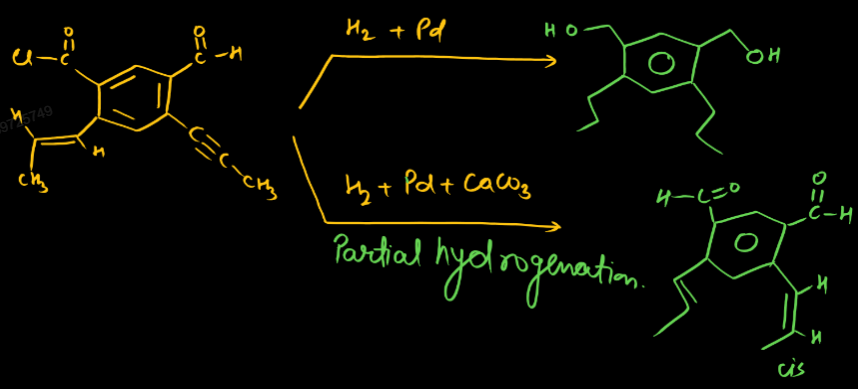 H2 + Pd
O
Cl-C
O
C-H
H
H
CH3
C≡C
CH3
HO
OH
H2 + Pd + CaCO3
Partial hydrogenation.
H-C=O
O
C-H
H
H
cis